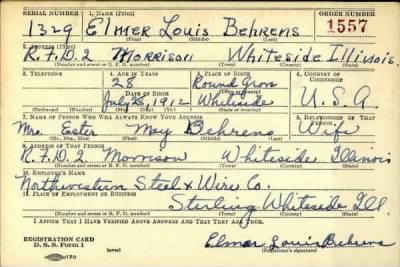 SERIAL NUMBER 1. NAME (Print) ORDER NUMBER
1329 Elmer Louis Behrens 1557
(First) (Middle) (Last)
2. ADDRESS (Print)
R.F.D.2 Morrison Whiteside Illinois.
(Number and street or R. F. D. number) (Town) (County) (State)
3. TELEPHONE 4. AGE IN YEARS 5. PLACE OF BIRTH 6. COUNTRY OF CITIZENSHIP
28 Round Grov
DATE OF BIRTH (Town or county)
July 26, 1912 Whiteside U.S.A.
(Exchange) (Number) (Mo.) (Day) (Yr.) (State or country)
7. NAME OF PERSON WHO WILL ALWAYS KNOW YOUR ADDRESS 8. RELATIONSHIP OF THAT PERSON
Mrs. Ester May Behrens Wife
(Mr., Mrs., Miss) (First) (Middle) (Last)
9. ADDRESS OF THAT PERSON
R.F.D.2 Morrison Whiteside Illinois
(Number and street or R. F. D. number) (Town) (County) (State)
10. EMPLOYER'S NAME
Northwestern Steel & Wire Co.
11. PLACE OF EMPLOYMENT OR BUSINESS
Sterling Whiteside Ill.
(Number and street or R. F. D. number) (Town) (County) (State)
I AFFIRM THAT I HAVE VERIFIED ABOVE ANSWERS AND THAT THEY ARE TRUE.
REGISTRATION CARD
D. S. S. Form 1 Elmer Louis Behrens
(over) (Registrant's signature)